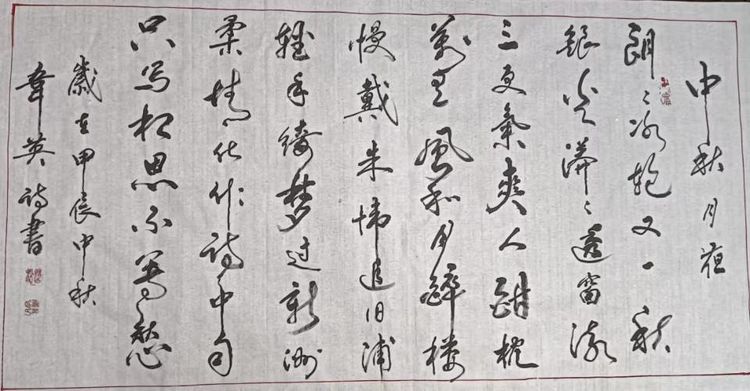 中秋月夜
朗々冰艳又一秋
银光满々透窗流
三更气爽人酣枕
万里风和月醉楼
慢戴朱帏追旧浦
轻手绮梦过新洲
柔情化作诗中句
只写相思不写愁
岁在甲辰中秋
韦英诗书